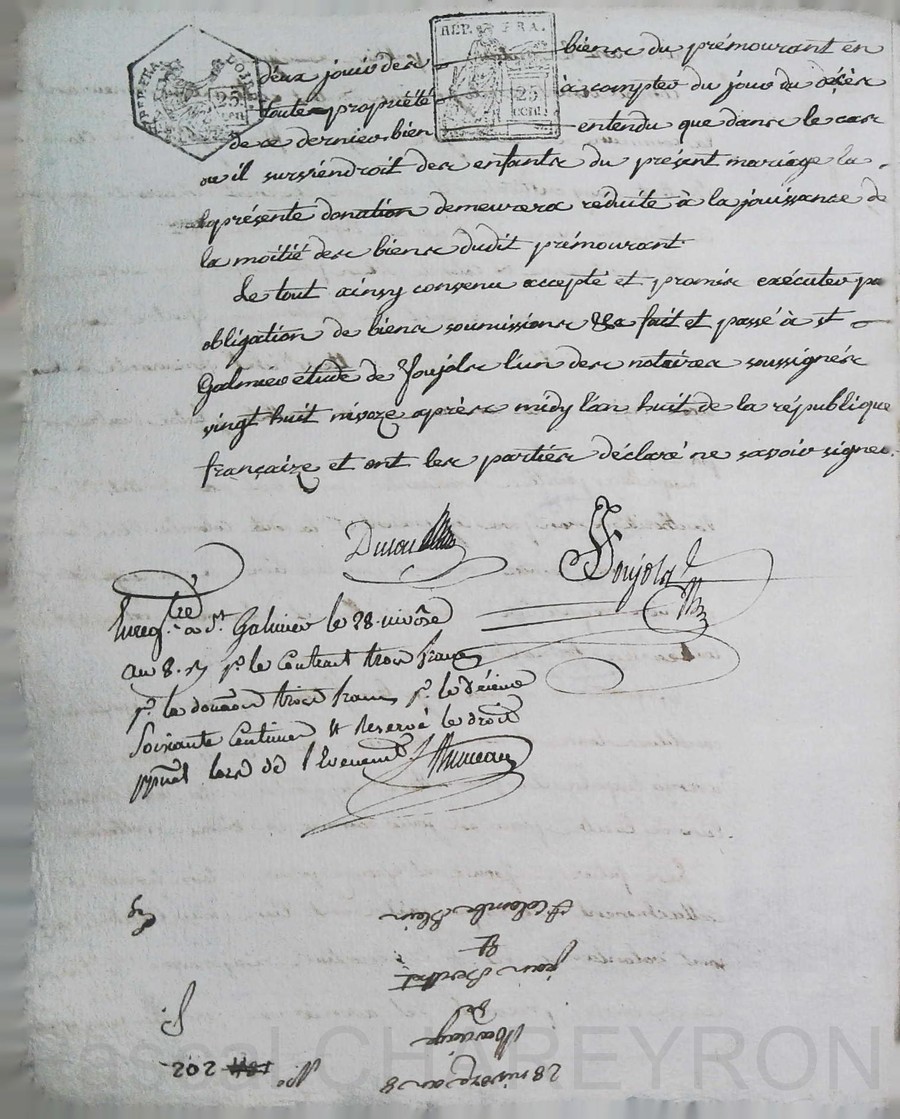 RÉP. FRA.
RÉP. FRA.
25
cen.
25
cent.
deux jouir des biens du prémourant en
toute propriété à compter du jour du décès
de ce dernier bien entendu que dans le cas
ou il surviendroit des enfants du présent mariage la
présente donation demeurera réduite à la jouissance de
la moitié des biens dudit prémourant
Le tout ainsy convenu accepté et promis exécuter par
obligation de biens soumissions &a fait et passé à st
Galmier étude de Joujols l'un des notaires soussignés
vingt huit nivoze après midy l'an huit de la république
françaize et ont les parties déclaré ne savoir signer.
Joujols
Enregtré a St. Galmier le 28 nivôse
an 8. pr. le Contract trois francs
pr. la donaon trois francs pr. le Dixieme
Soixante Centimes & Reservé le droit
lors de l'Evenement
28 nivoze an 8
Mariage
de
jean Berthet
et
Colombe Blein
No. 202
Pascal CHAREYRON